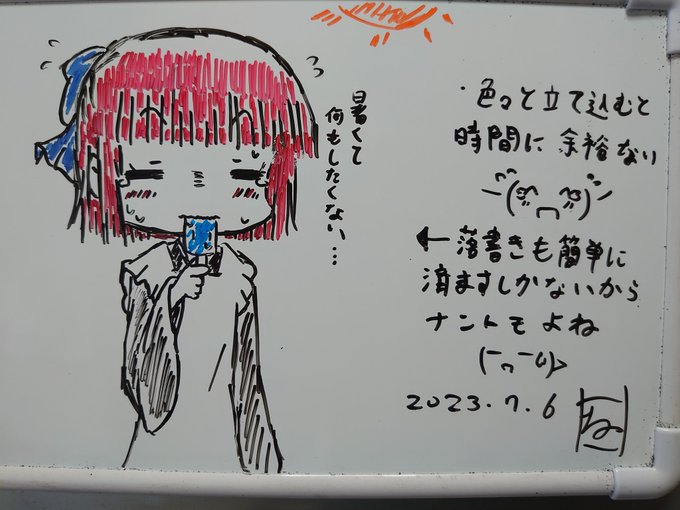 暑くて
何もしたくない…
・色々と立て込むと
時間に余裕ない
←落書きも簡単に
済ますしかないから
ナントモよね
2023.7.6